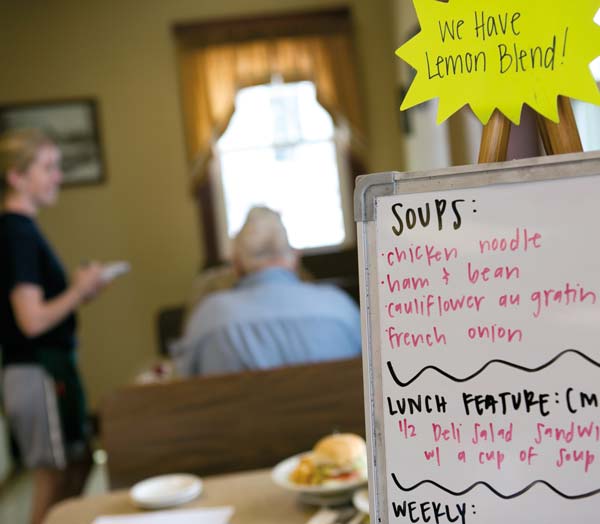 We Have
Lemon Blend!
SOUPS:
·chicken noodle
·ham & bean
·cauliflower au gratin
·french onion
LUNCH FEATURE: (M
1/2 Deli Salad Sandwi
w/ a cup of soup
WEEKLY: